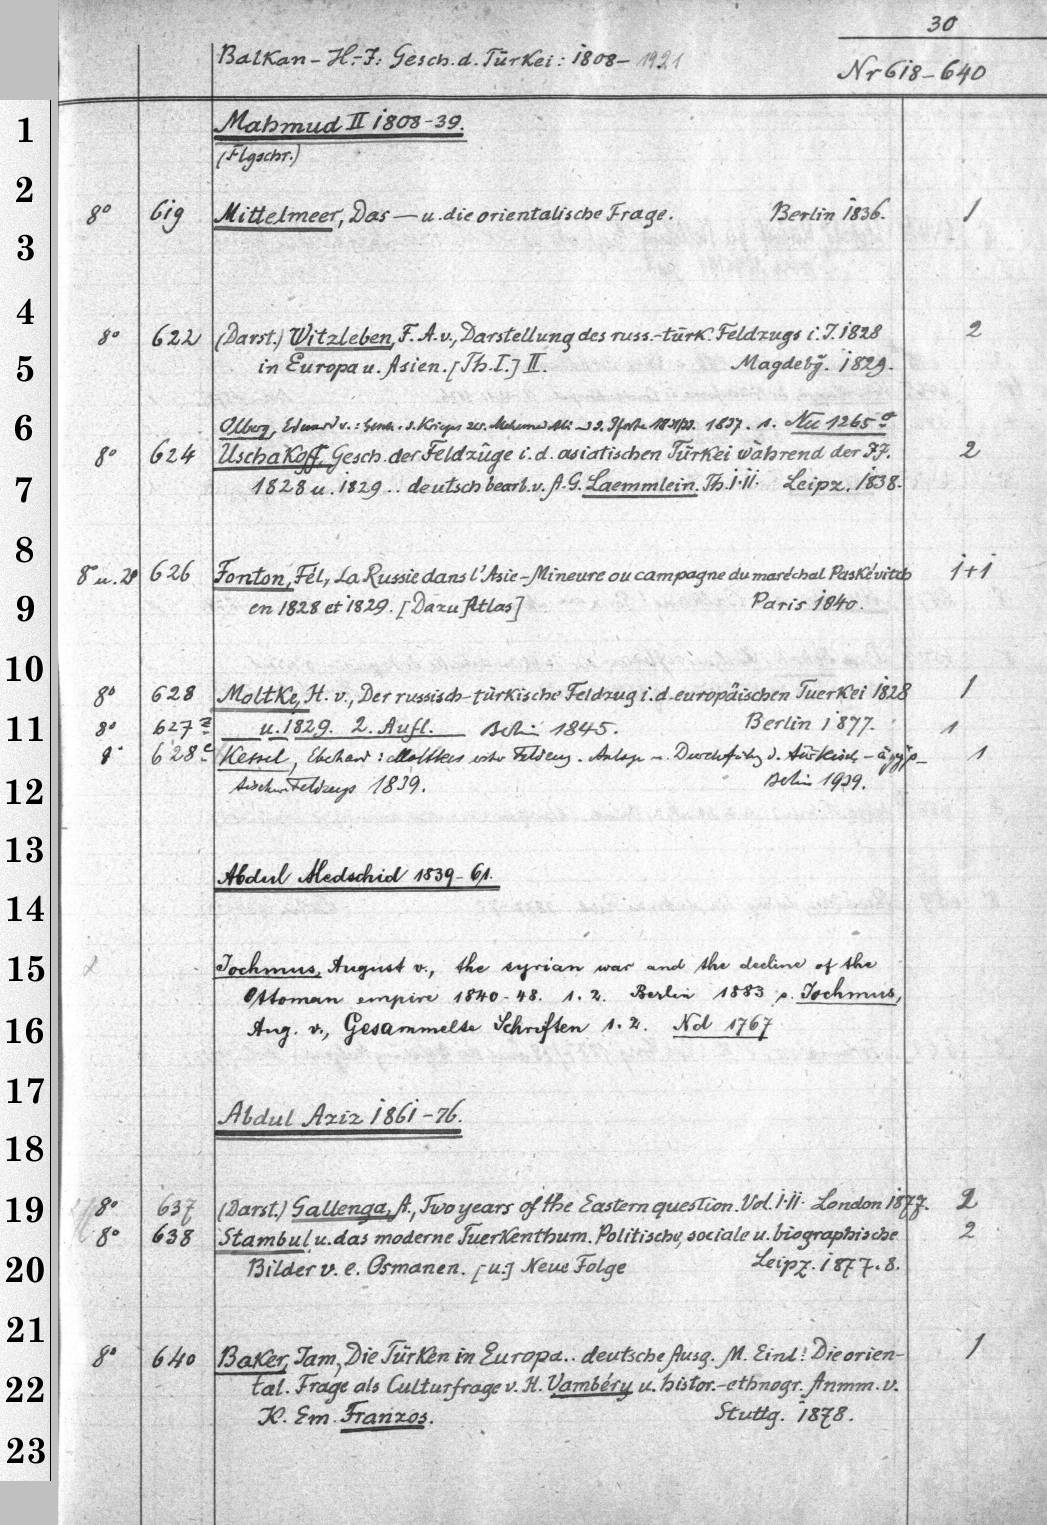 30
Balkan – H.-J: Gesch. d. Türkei: 1808– 1921
Nr 618–640
1
Mahmud II 1808–39.
(Flgschr.)
2
8° 619 Mittelmeer, Das — u. die orientalische Frage. Berlin 1836. 1
3
4
8° 622 (Darst.) Witzleben, F. A. v., Darstellung des russ.-türk. Feldzugs i. J. 1828 2
5
in Europa u. Asien. [Th. I.] II. Magdebg. 1829.
6
Olberg, Eduard v.: 1837. s.
8° 624 Uschakoff, Gesch. der Feldzüge i. d. asiatischen Türkei während der JJ. 2
7
1828 u. 1829 .. deutsch bearb. v. A. G. Laemmlein. Th. I·II. Leipz. 1838.
8
8° u. 2° 626 Fonton, Fél., La Russie dans l'Asie-Mineure ou campagne du maréchal Paskévitch 1+1
9
en 1828 et 1829. [Dazu Atlas] Paris 1840.
10
8° 628 Moltke, H. v., Der russisch-türkische Feldzug i. d. europäischen Tuerkei 1828 1
11
u. 1829. 2. Aufl. Berlin 1877.
8° 627 a Berlin 1845. 1
8° 628 c Kessel, Eberhard: Moltkes erster Feldzug. Anlage u. Durchführg d. türkisch-ägyp- 1
12
tischen Feldzugs 1839. Berlin 1939.
13
Abdul Medschid 1839–61.
14
15
Jochmus, August v., the syrian war and the decline of the
Ottoman empire 1840-48. 1. 2. Berlin 1883 s. Jochmus,
16
Aug. v., Gesammelte Schriften 1. 2. Nd 1767
17
Abdul Aziz 1861–76.
18
19
8° 637 (Darst.) Gallenga, A., Two years of the Eastern question. Vol. I·II. London 1877. 2
8° 638 Stambul u. das moderne Tuerkenthum. Politische, sociale u. biographische 2
20
Bilder v. e. Osmanen. [u.] Neue Folge Leipz. 1877. 8.
21
8° 640 Baker, Jam., Die Türken in Europa .. deutsche Ausg. M. Einl: Die orien- 1
22
tal. Frage als Culturfrage v. H. Vambéry u. histor.-ethnogr. Anmm. v.
K. Em. Franzos. Stuttg. 1878.
23